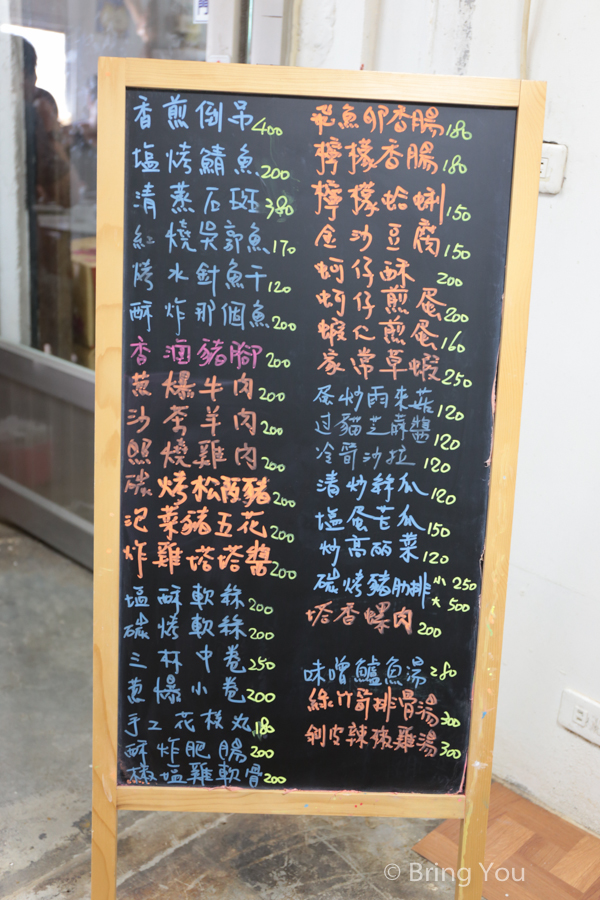 香煎倒吊 400
塩烤鯖魚 200
清蒸石斑 380
紅燒吳郭魚 170
烤水針魚干 120
酥炸那個魚 200
香滷豬腳 200
蔥爆牛肉 200
沙茶羊肉 200
照燒雞肉 200
碳烤松阪豬 200
泡菜豬五花 200
炸雞塔塔醬 200
塩酥軟絲 200
碳烤軟絲 200
三杯中卷 250
蔥爆小卷 200
手工花枝丸 180
酥炸肥腸 200
椒塩雞軟骨 200
飛魚卵香腸 180
檸檬香腸 180
檸檬蛤蜊 150
金沙豆腐 150
蚵仔酥 200
蚵仔煎蛋 200
蝦仁煎蛋 160
家常草蝦 250
蛋炒雨來菇 120
过貓芝麻醬 120
冷筍沙拉 120
清炒絲瓜 120
塩蛋苦瓜 150
炒高丽菜 120
碳烤豬肋排 小 250
大 500
塔香螺肉 200
味噌鱸魚湯 280
綠竹筍排骨湯 300
剝皮辣椒雞湯 300
© Bring You